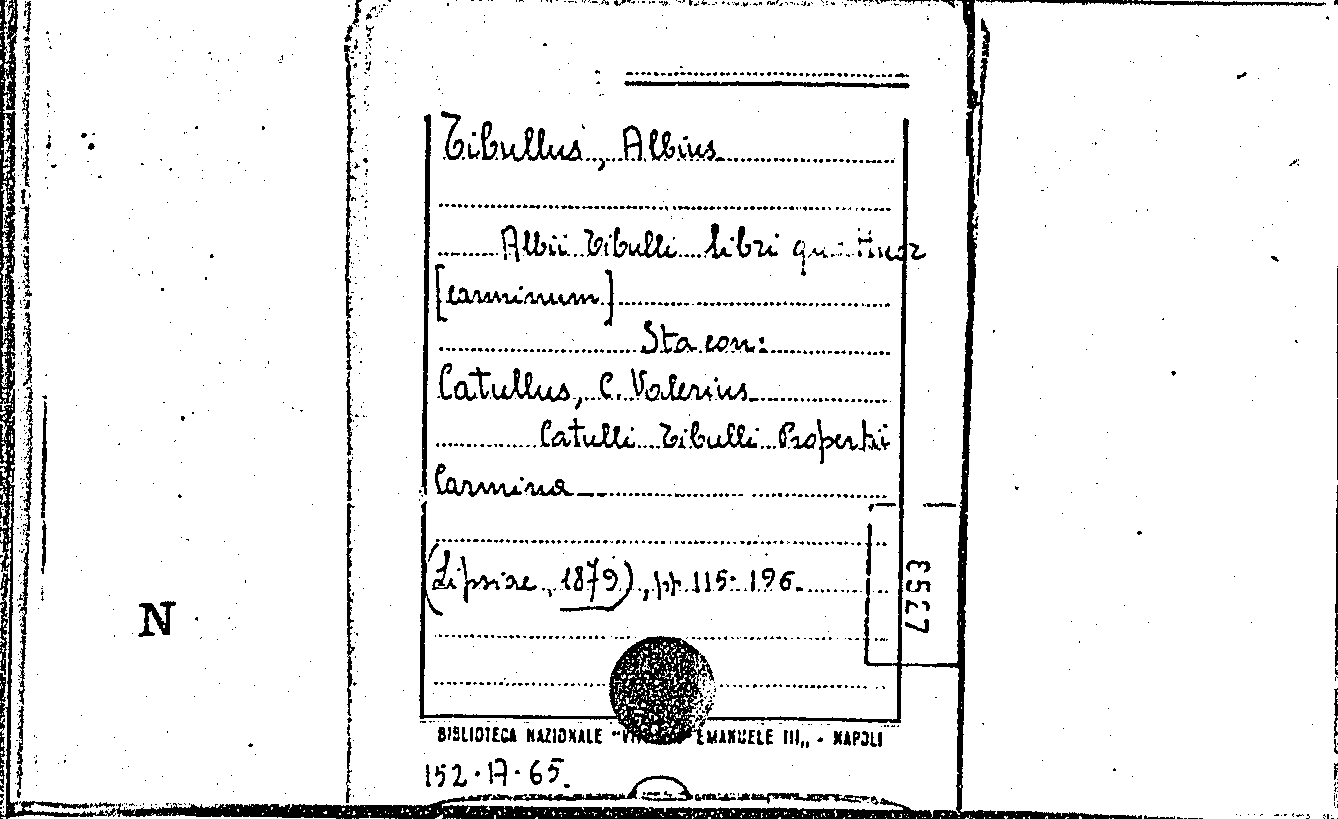 Tibullus, Albius
Albii Tibulli libri quattuor
[carminum]
Sta con:
Catullus, C. Valerius
Catulli Tibulli Propertii
Carmina
(Lipsiae, 1879), pp. 115-196.
N
BIBLIOTECA NAZIONALE "VITTORIO EMANUELE III" - NAPOLI
152.A.65.